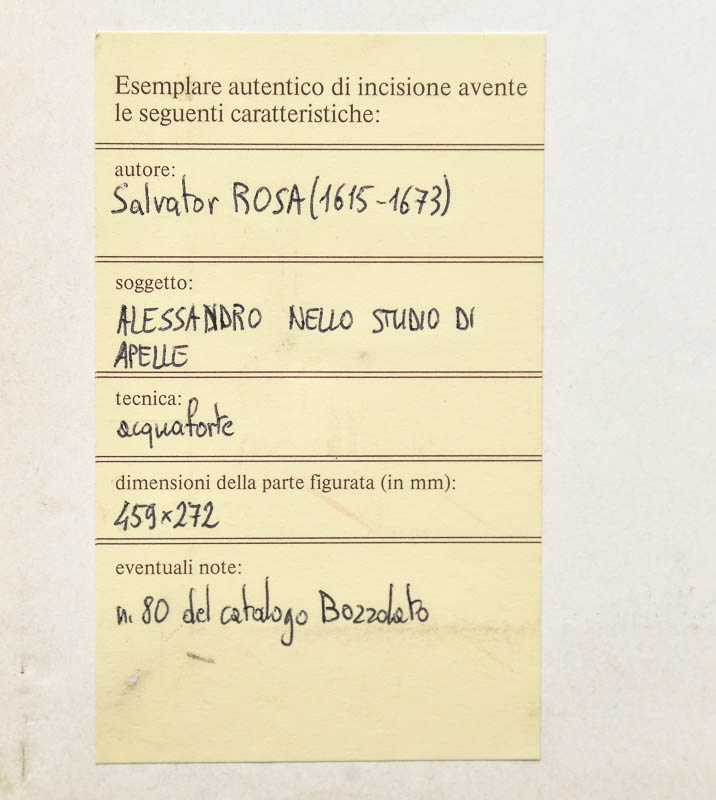 Esemplare autentico di incisione avente
le seguenti caratteristiche:
autore:
Salvator ROSA (1615-1673)
soggetto:
ALESSANDRO NELLO STUDIO DI
APELLE
tecnica:
acquaforte
dimensioni della parte figurata (in mm):
459×272
eventuali note:
n. 80 del catalogo Bozzolato